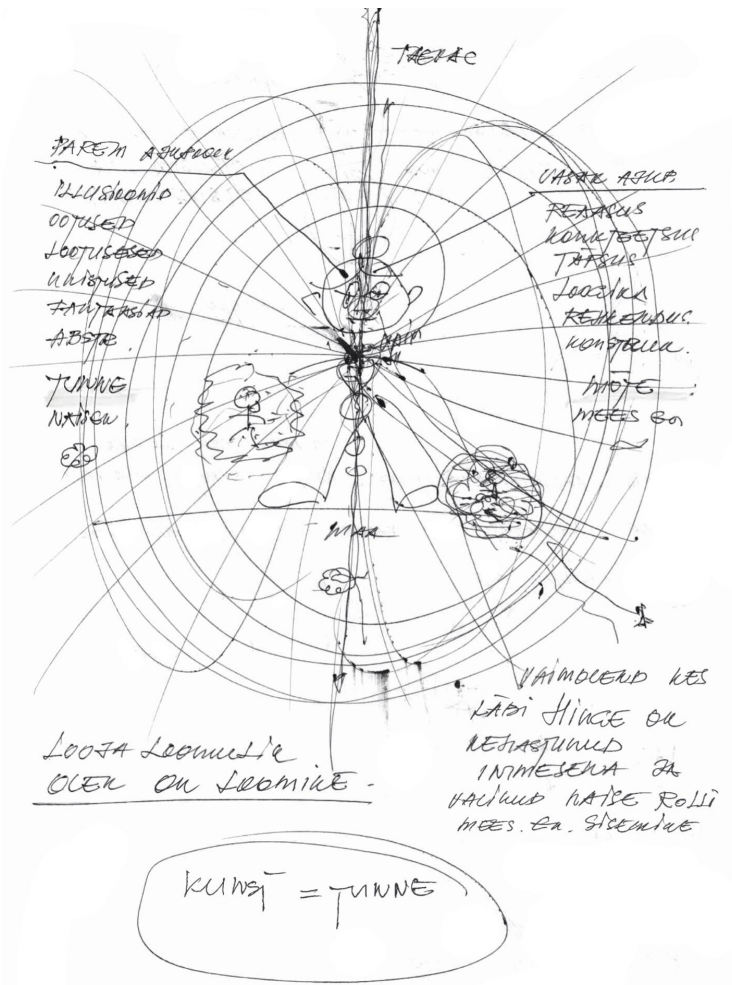 TAEVAS
PAREM AJUPOOL
ILLUSIOONID
OOTUSED
LOOTUSED
UNISTUSED
FANTAASIAD
ABSTR.
TUNNE
NAISEN.
VASAK AJUP.
REAALSUS
KONKREETSUS
TÄPSUS
LOOGIKA
KONSTRUK.
MÕTE
MEES EN
VAIM
MAA
VAIMOLEND KES
LÄBI HINGE ON
KEHASTUNUD
INIMESENA JA
VALINUD NAISE ROLLI
MEES. EN. SISEMINE
LOOJA LOOMULIK
OLEK ON LOOMINE.
KUNST = TUNNE